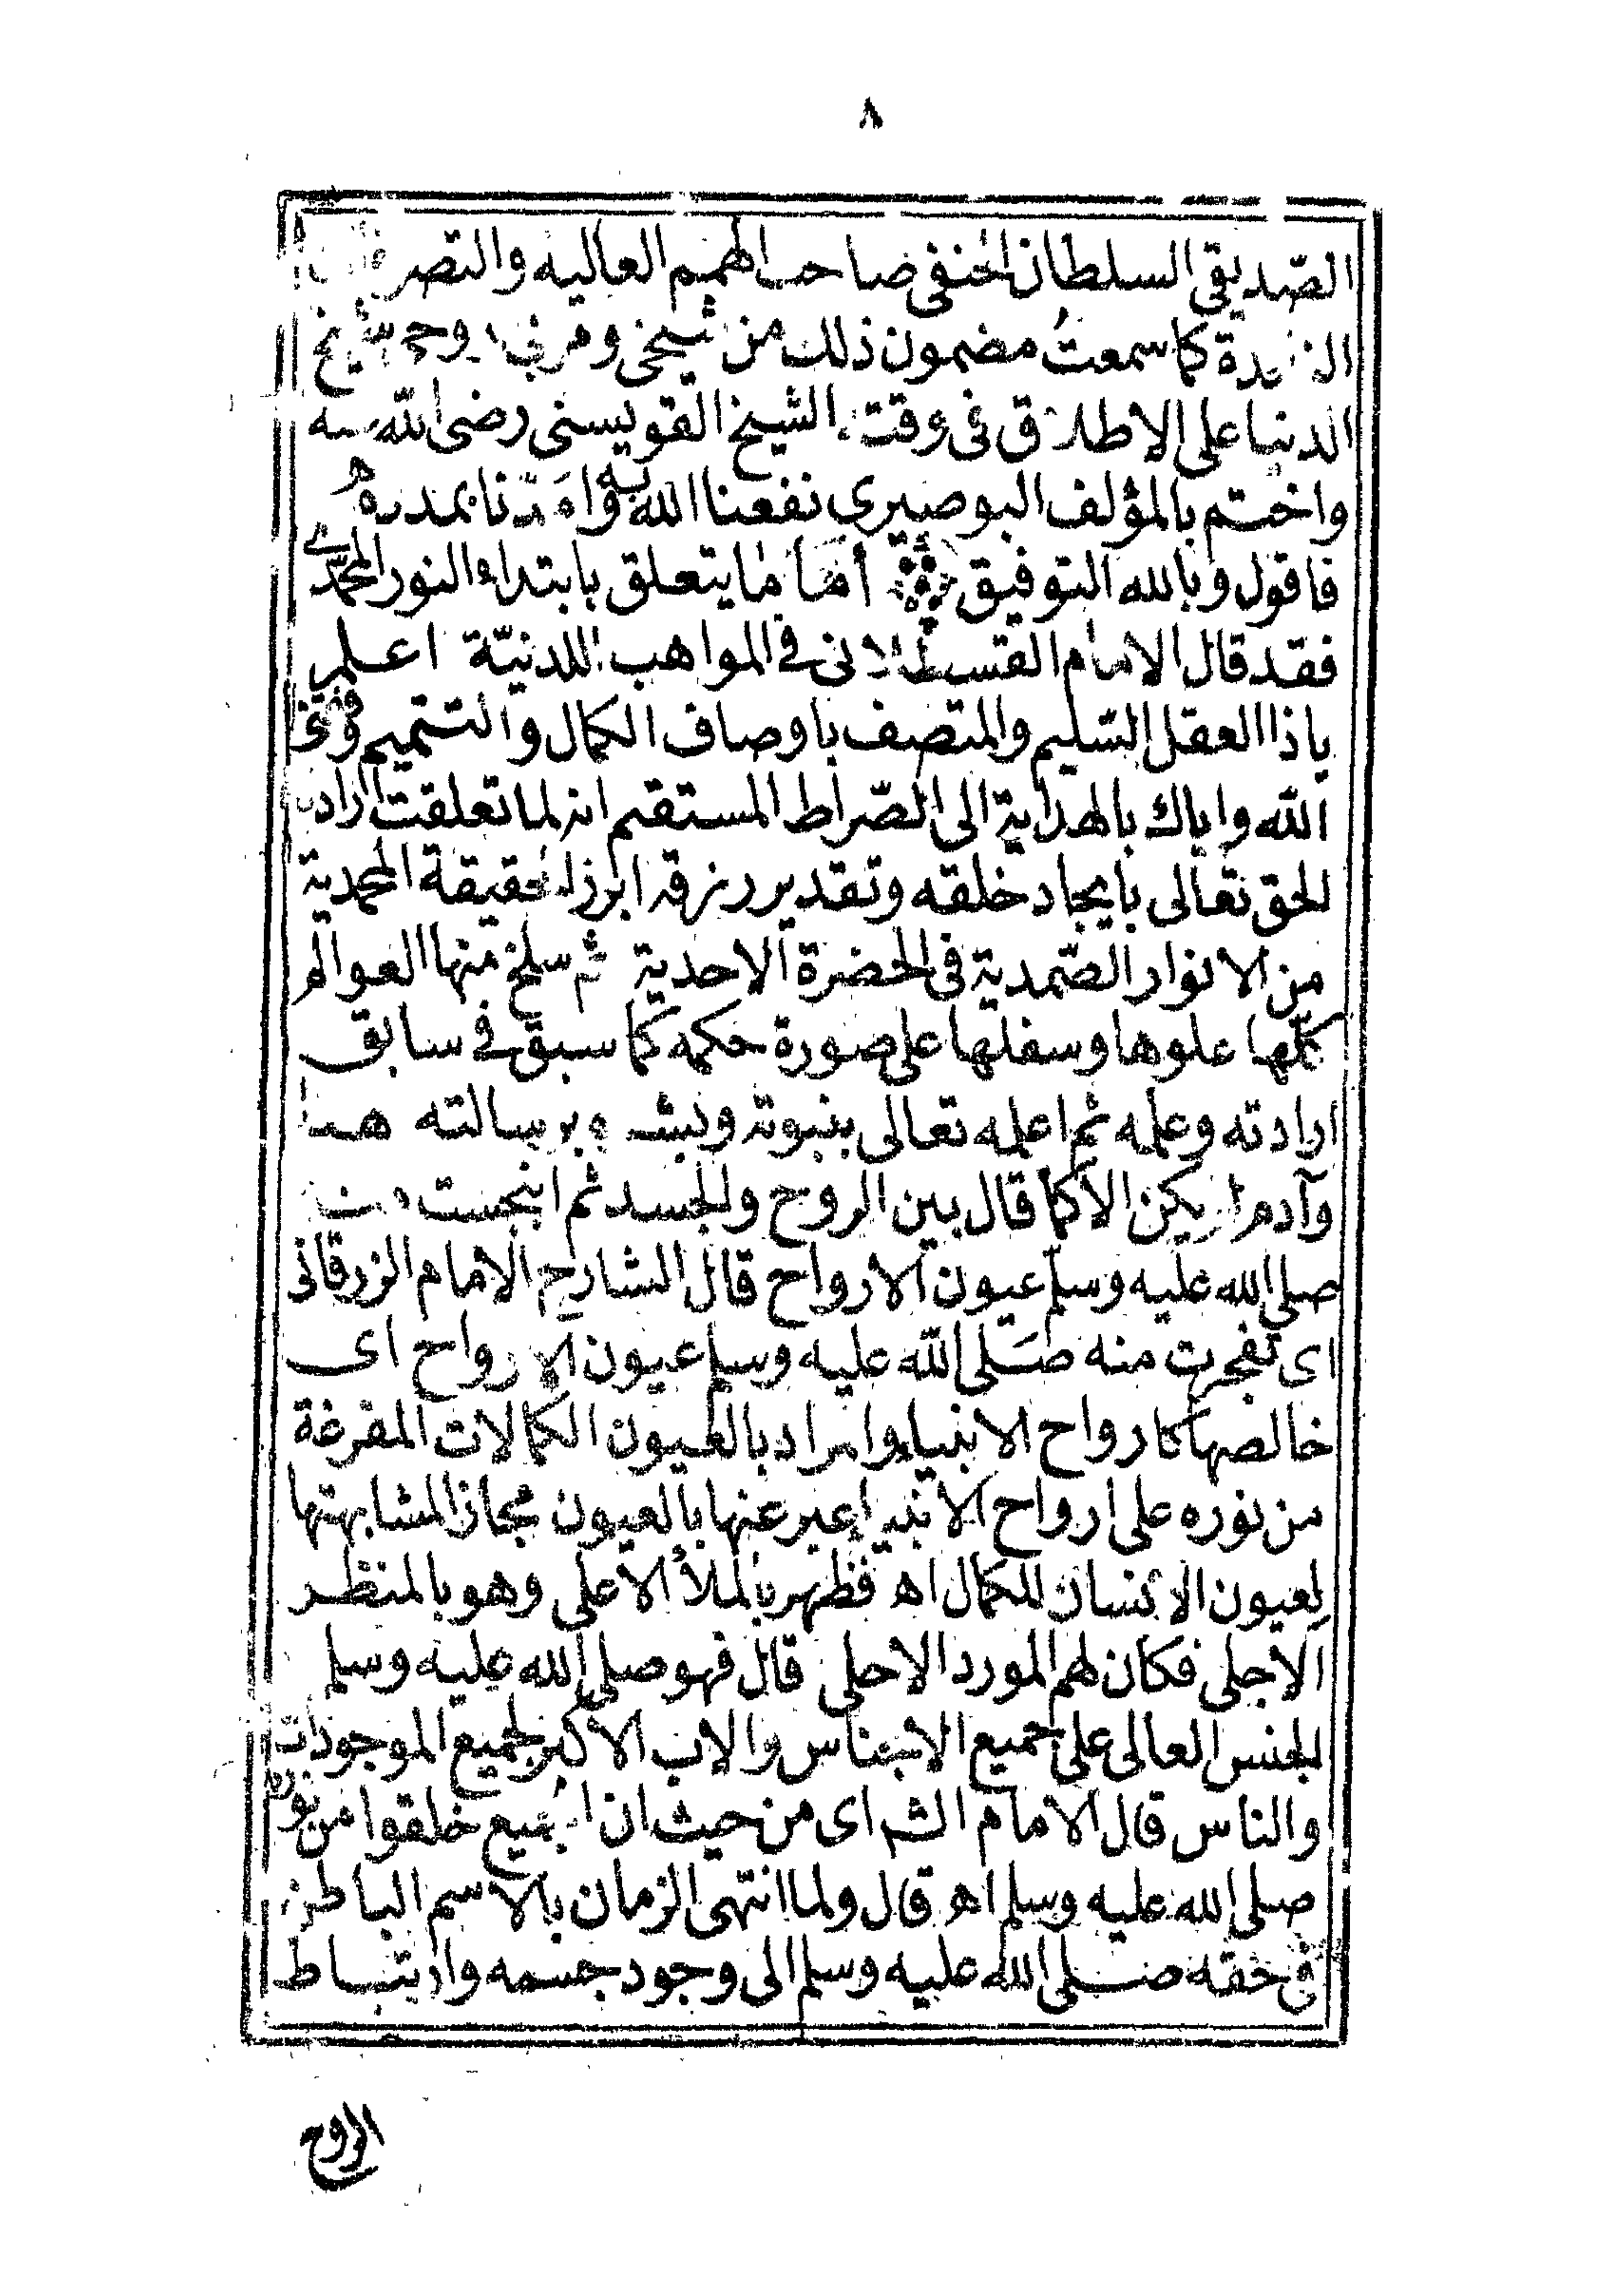 ٨
الصّديقى السلطان الحنفى صاحب الهمم العاليه والتصر
كما سمعتُ مضمون ذلك من شيخى ومربى وحى شيخ
الدنيا على الاطلاق فى وقته الشيخ القويسنى رضى الله عنه
واختم بالمؤلف البوصيرى نفعنا الله به وامَدّنا بمددهم
فاقول وبالله التوفيق أمّا ما يتعلق بابتداء النور المحمّدى
فقد قال الامام القسطلانى فى المواهب اللدنيّة اعلم
ياذا العقل السّليم والمتصف باوصاف الكمال والتتميم وفقنى
الله واياك بالهداية الى الصّراط المستقيم انه لما تعلقت ارادة
الحق تعالى بايجاد خلقه وتقدير رزقه ابرز الحقيقة المحمدية
من الانوار الصّمدية فى الحضرة الاحدية ثم سلخ منها العوالم
كلّها علوها وسفلها على صورة حكمه كما سبق فى سابق
ارادته وعلمه ثم اعلمه تعالى بنبوته وبشره برسالته هذا
وآدم لم يكن الا كما قال بين الروح والجسد ثم انبجست منه
صلى الله عليه وسلم عيون الارواح قال الشارح الامام الزرقانى
اى تفجرت منه صَلى الله عليه وسلم عيون الارواح اى
خالصها كارواح الانبياء والمراد بالعيون الكمالات المفرغة
من نوره على ارواح الانبياء عبر عنها بالعيون مجازا لمشابهتها
لعيون الانسان للكمال اه فظهر بالملأ الاعلى وهو بالمنظر
الاجلى فكان لهم المورد الاحلى قال فهو صلى الله عليه وسلم
الجنس العالى على جميع الاجناس والاب الاكبر لجميع الموجودات
والناس قال الامام الشراى من حيث ان الجميع خلقوا من نوره
صلى الله عليه وسلم اه قال ولما انتهى الزمان بالاسم الباطن
فى حقه صلى الله عليه وسلم الى وجود جسمه وارتباط
الروح